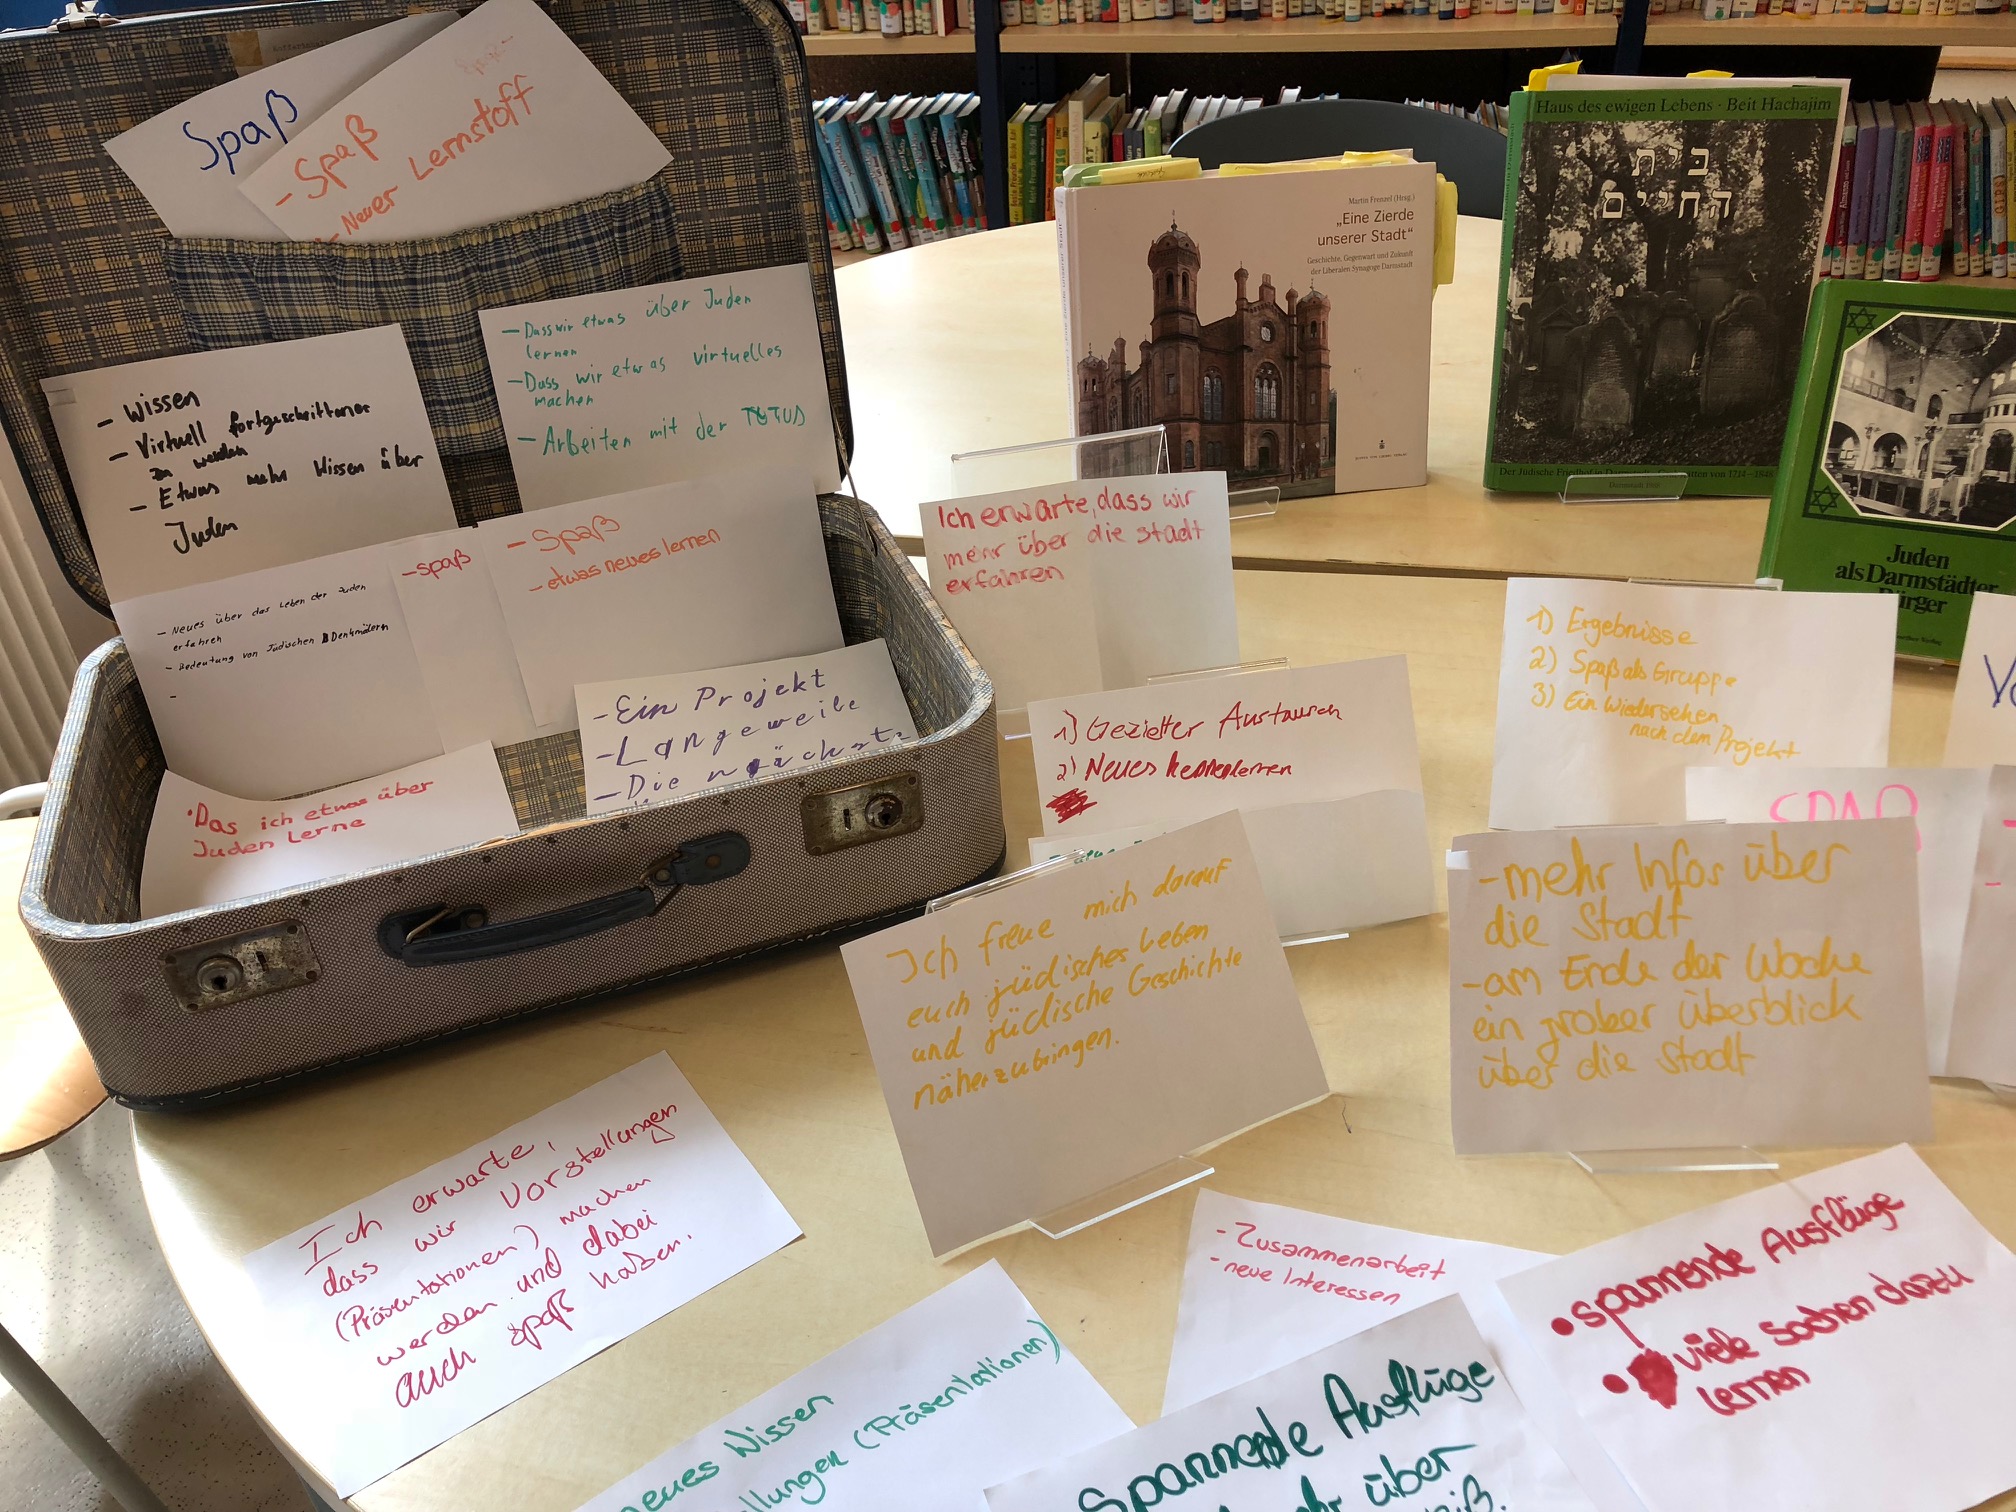 Spaß
- Spaß
- Neuer Lernstoff
- Wissen
- Virtuell fortgeschrittener
zu werden
- Etwas mehr Wissen über
Juden
- Dass wir etwas über Juden
lernen
- Dass wir etwas virtuelles
machen
- Arbeiten mit der
- Neues über das Leben der Juden
erfahren
- Bedeutung von Jüdischen Denkmälern
-
- spaß
- Spaß
- etwas neues lernen
- Ein Projekt
- Langeweile
- Die
• Das ich etwas über
Juden Lerne
Martin Frenzel (Hrsg.)
„Eine Zierde
unserer Stadt“
Geschichte, Gegenwart und Zukunft
der Liberalen Synagoge Darmstadt
Haus des ewigen Lebens · Beit Hachajim
בית
החיים
Der Jüdische Friedhof in Darmstadt von 1714-1848
Darmstadt
Juden
als Darmstädter
Bürger
Ich erwarte, dass wir
mehr über die stadt
erfahren
1) Gezielter Austausch
2) Neues kennenlernen
1) Ergebnisse
2) Spaß als Gruppe
3) Ein Wiedersehen
nach dem Projekt
SPAß
Ich freue mich darauf
euch jüdisches Leben
und jüdische Geschichte
näherzubringen.
- mehr Infos über
die Stadt
- am Ende der Woche
ein grober überblick
über die Stadt
Ich erwarte,
dass wir Vorstellungen
(Präsentationen) machen
werden und dabei
auch spaß haben.
- Zusammenarbeit
- neue Interessen
• spannende Ausflüge
• viele sachen dazu
lernen
neues Wissen
llungen (Präsentationen)
Spannende Ausflüge
über